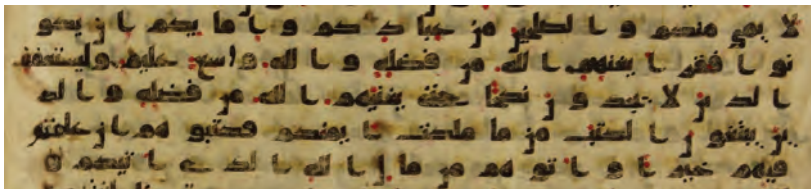 لايمى منكم والصلحين من عبادكم وامايكم ان يكو
نوا فقرا يغنهم الله من فضله والله واسع عليم وليستعفف
الذين لا يجدون نكحا حتى يغنيهم الله من فضله والذ
ين يبتغون الكتب مما ملكت ايمنكم فكتبوهم ان علمتم
فيهم خيرا واتوهم من مال الله الذي اتيكم